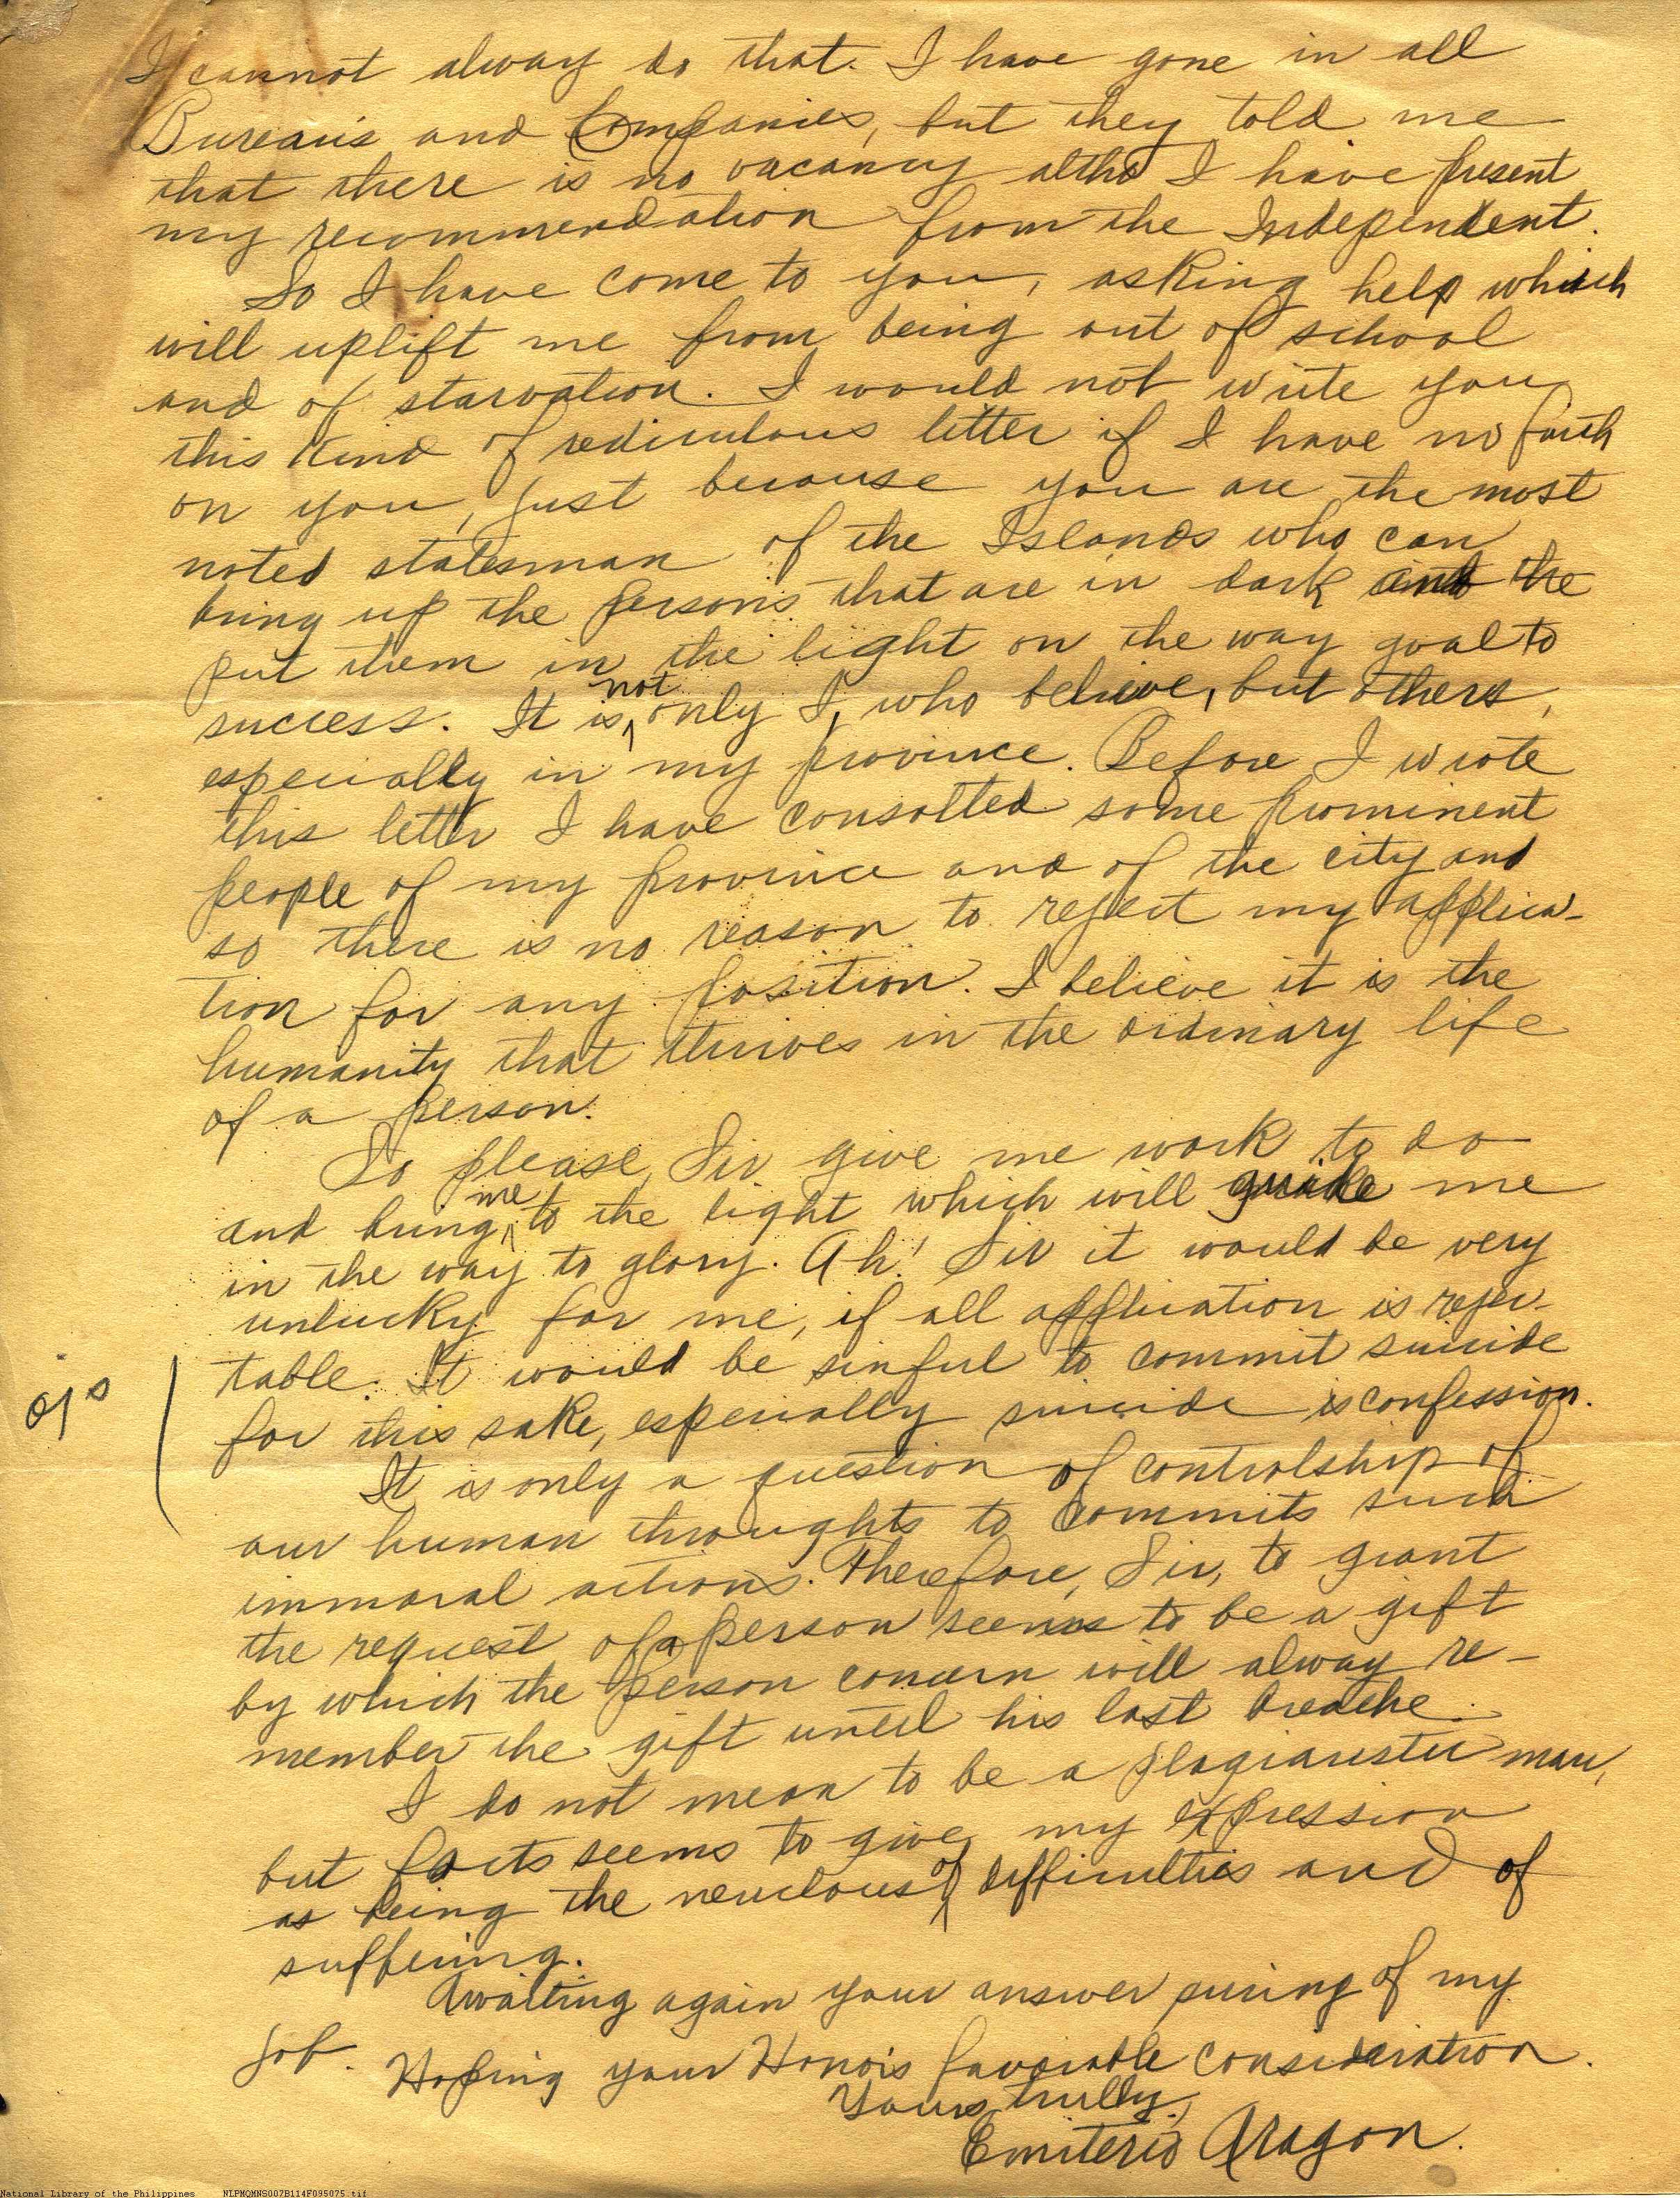 I cannot alway do that. I have gone in all
Bureaus and Companies, but they told me
that there is no vacancy altho I have present
my recommendation from the Independent.
So I have come to you, asking help which
will uplift me from being out of school
and of starvation. I would not write you
this kind of rediculous letter if I have no faith
on you, just because you are the most
noted statesman of the Islands who can
bring up the persons that are in dark and the
put them in the light on the way goal to
success. It is not only I, who believe, but others,
especially in my province. Before I wrote
this letter I have consolted some prominent
people of my province and of the city and
so there is no reason to reject my applica-
tion for any position. I believe it is the
humanity that thrives in the ordinary life
of a person.
So please, Sir give me work to do
and bring me to the light which will guide me
in the way to glory. Ah! Sir it would be very
unlucky for me, if all application is rejec-
table. It would be sinful to commit suicide
for this sake, especially suicide is confession.
ojo
It is only a question of controlship of
our human throughts to commits such
immoral actions. Therefore, Sir, to grant
the request of a person seems to be a gift
by which the person concern will alway re-
member the gift until his last breathe.
I do not mean to be a man,
but facts seems to give my expression
as being the of difficulties and of
suffering.
Awaiting again your answer of my
job. Hoping your Honois favorable consideration.
Yours trully,
Emiterio Aragon.
National Library of the Philippines NLPMQMNS007B114F095075.tif